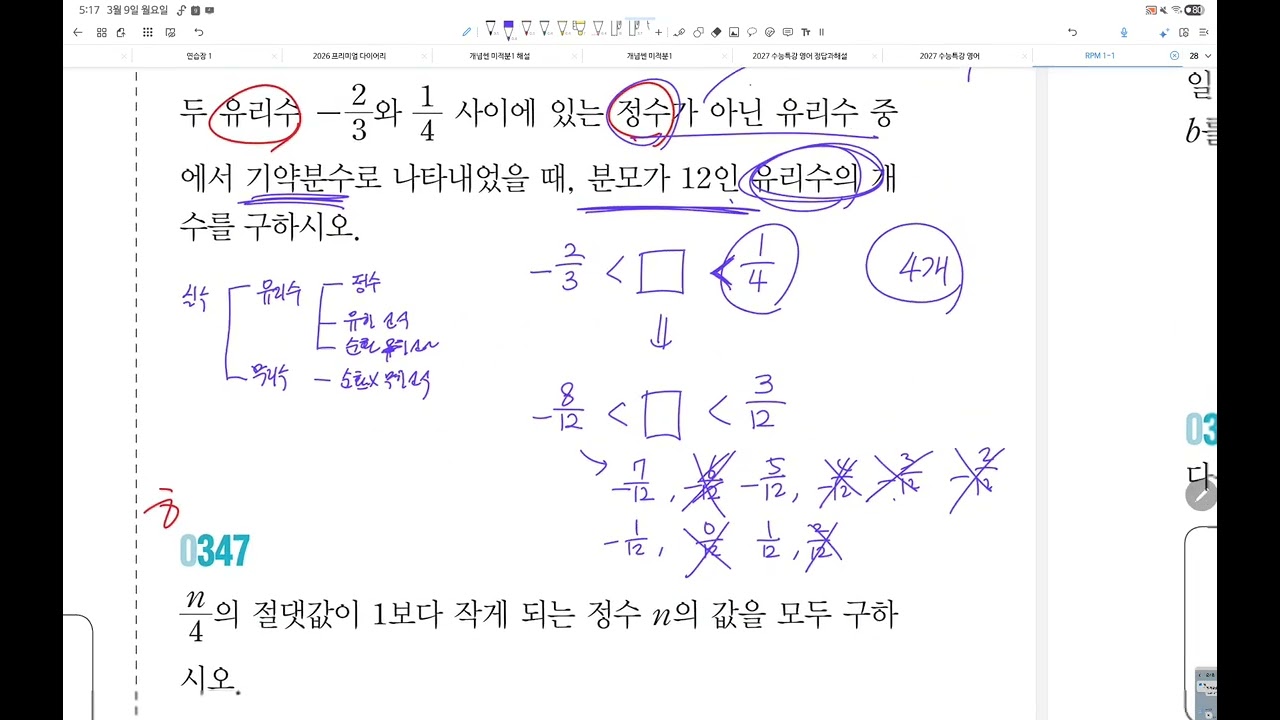 5:17 3월 9일 월요일
80
연습장 1
2026 프리미엄 다이어리
개념쎈 미적분1 해설
개념쎈 미적분1
2027 수능특강 영어 정답과해설
2027 수능특강 영어
RPM 1-1
28
두 유리수 -2/3와 1/4 사이에 있는 정수가 아닌 유리수 중
에서 기약분수로 나타내었을 때, 분모가 12인 유리수의 개
수를 구하시오.
-2/3 < □ < 1/4
4개
실수
유리수
정수
유한 소수
무리수
⇓
-8/12 < □ < 3/12
-7/12, -6/12 -5/12, -4/12 -3/12 -2/12
-1/12, 0/12 1/12, 2/12
0347
n/4의 절댓값이 1보다 작게 되는 정수 n의 값을 모두 구하
시오.
일
b를
03
다